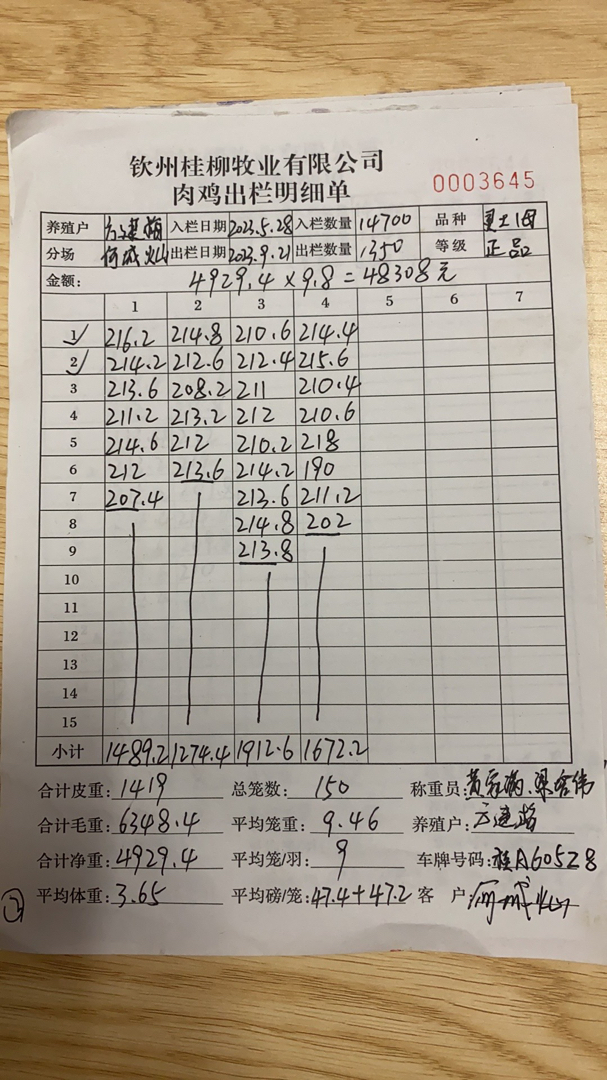 钦州桂柳牧业有限公司
肉鸡出栏明细单
0003645
养殖户 方建梅 入栏日期 2023.5.28 入栏数量 14700 品种
分场 何成灿 出栏日期 2023.9.21 出栏数量 1350 等级 正品
金额: 4929.4×9.8=48308元
1 2 3 4 5 6 7
1 216.2 214.8 210.6 214.4
2 214.2 212.6 212.4 215.6
3 213.6 208.2 211 210.4
4 211.2 213.2 212 210.6
5 214.6 212 210.2 218
6 212 213.6 214.2 190
7 207.4 213.6 211.2
8 214.8 202
9 213.8
10
11
12
13
14
15
小计 1489.2 1274.4 1912.6 1672.2
合计皮重: 1419 总笼数: 150 称重员:
合计毛重: 6348.4 平均笼重: 9.46 养殖户: 方建梅
合计净重: 4929.4 平均笼/羽: 9 车牌号码: 桂A605Z8
② 平均体重: 3.65 平均磅/笼: 47.4+47.2 客 户: 何成灿